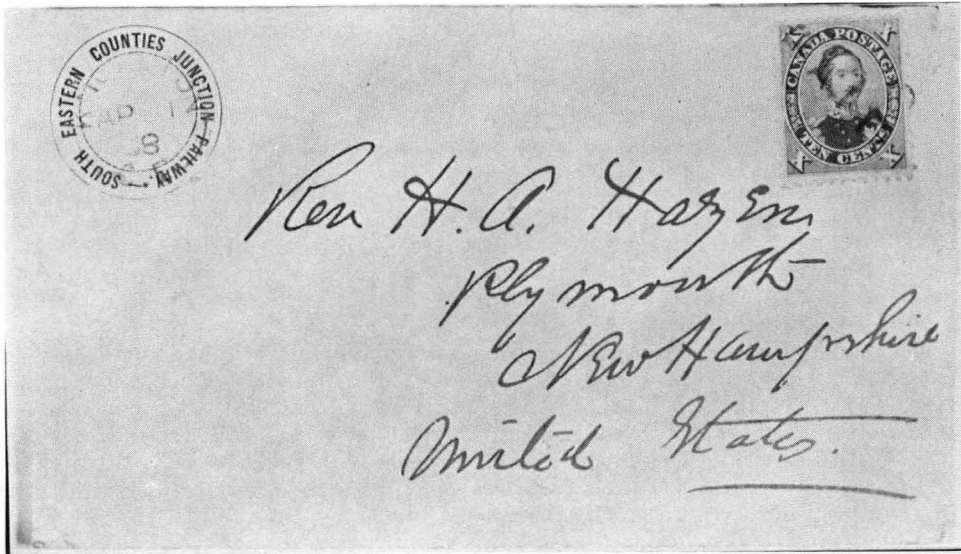 SOUTH EASTERN COUNTIES JUNCTION RAILWAY.
AP
CANADA POSTAGE
TEN CENTS
X
X
X
X
Rev H. A. Hazen
Plymouth
New Hampshire
United States.